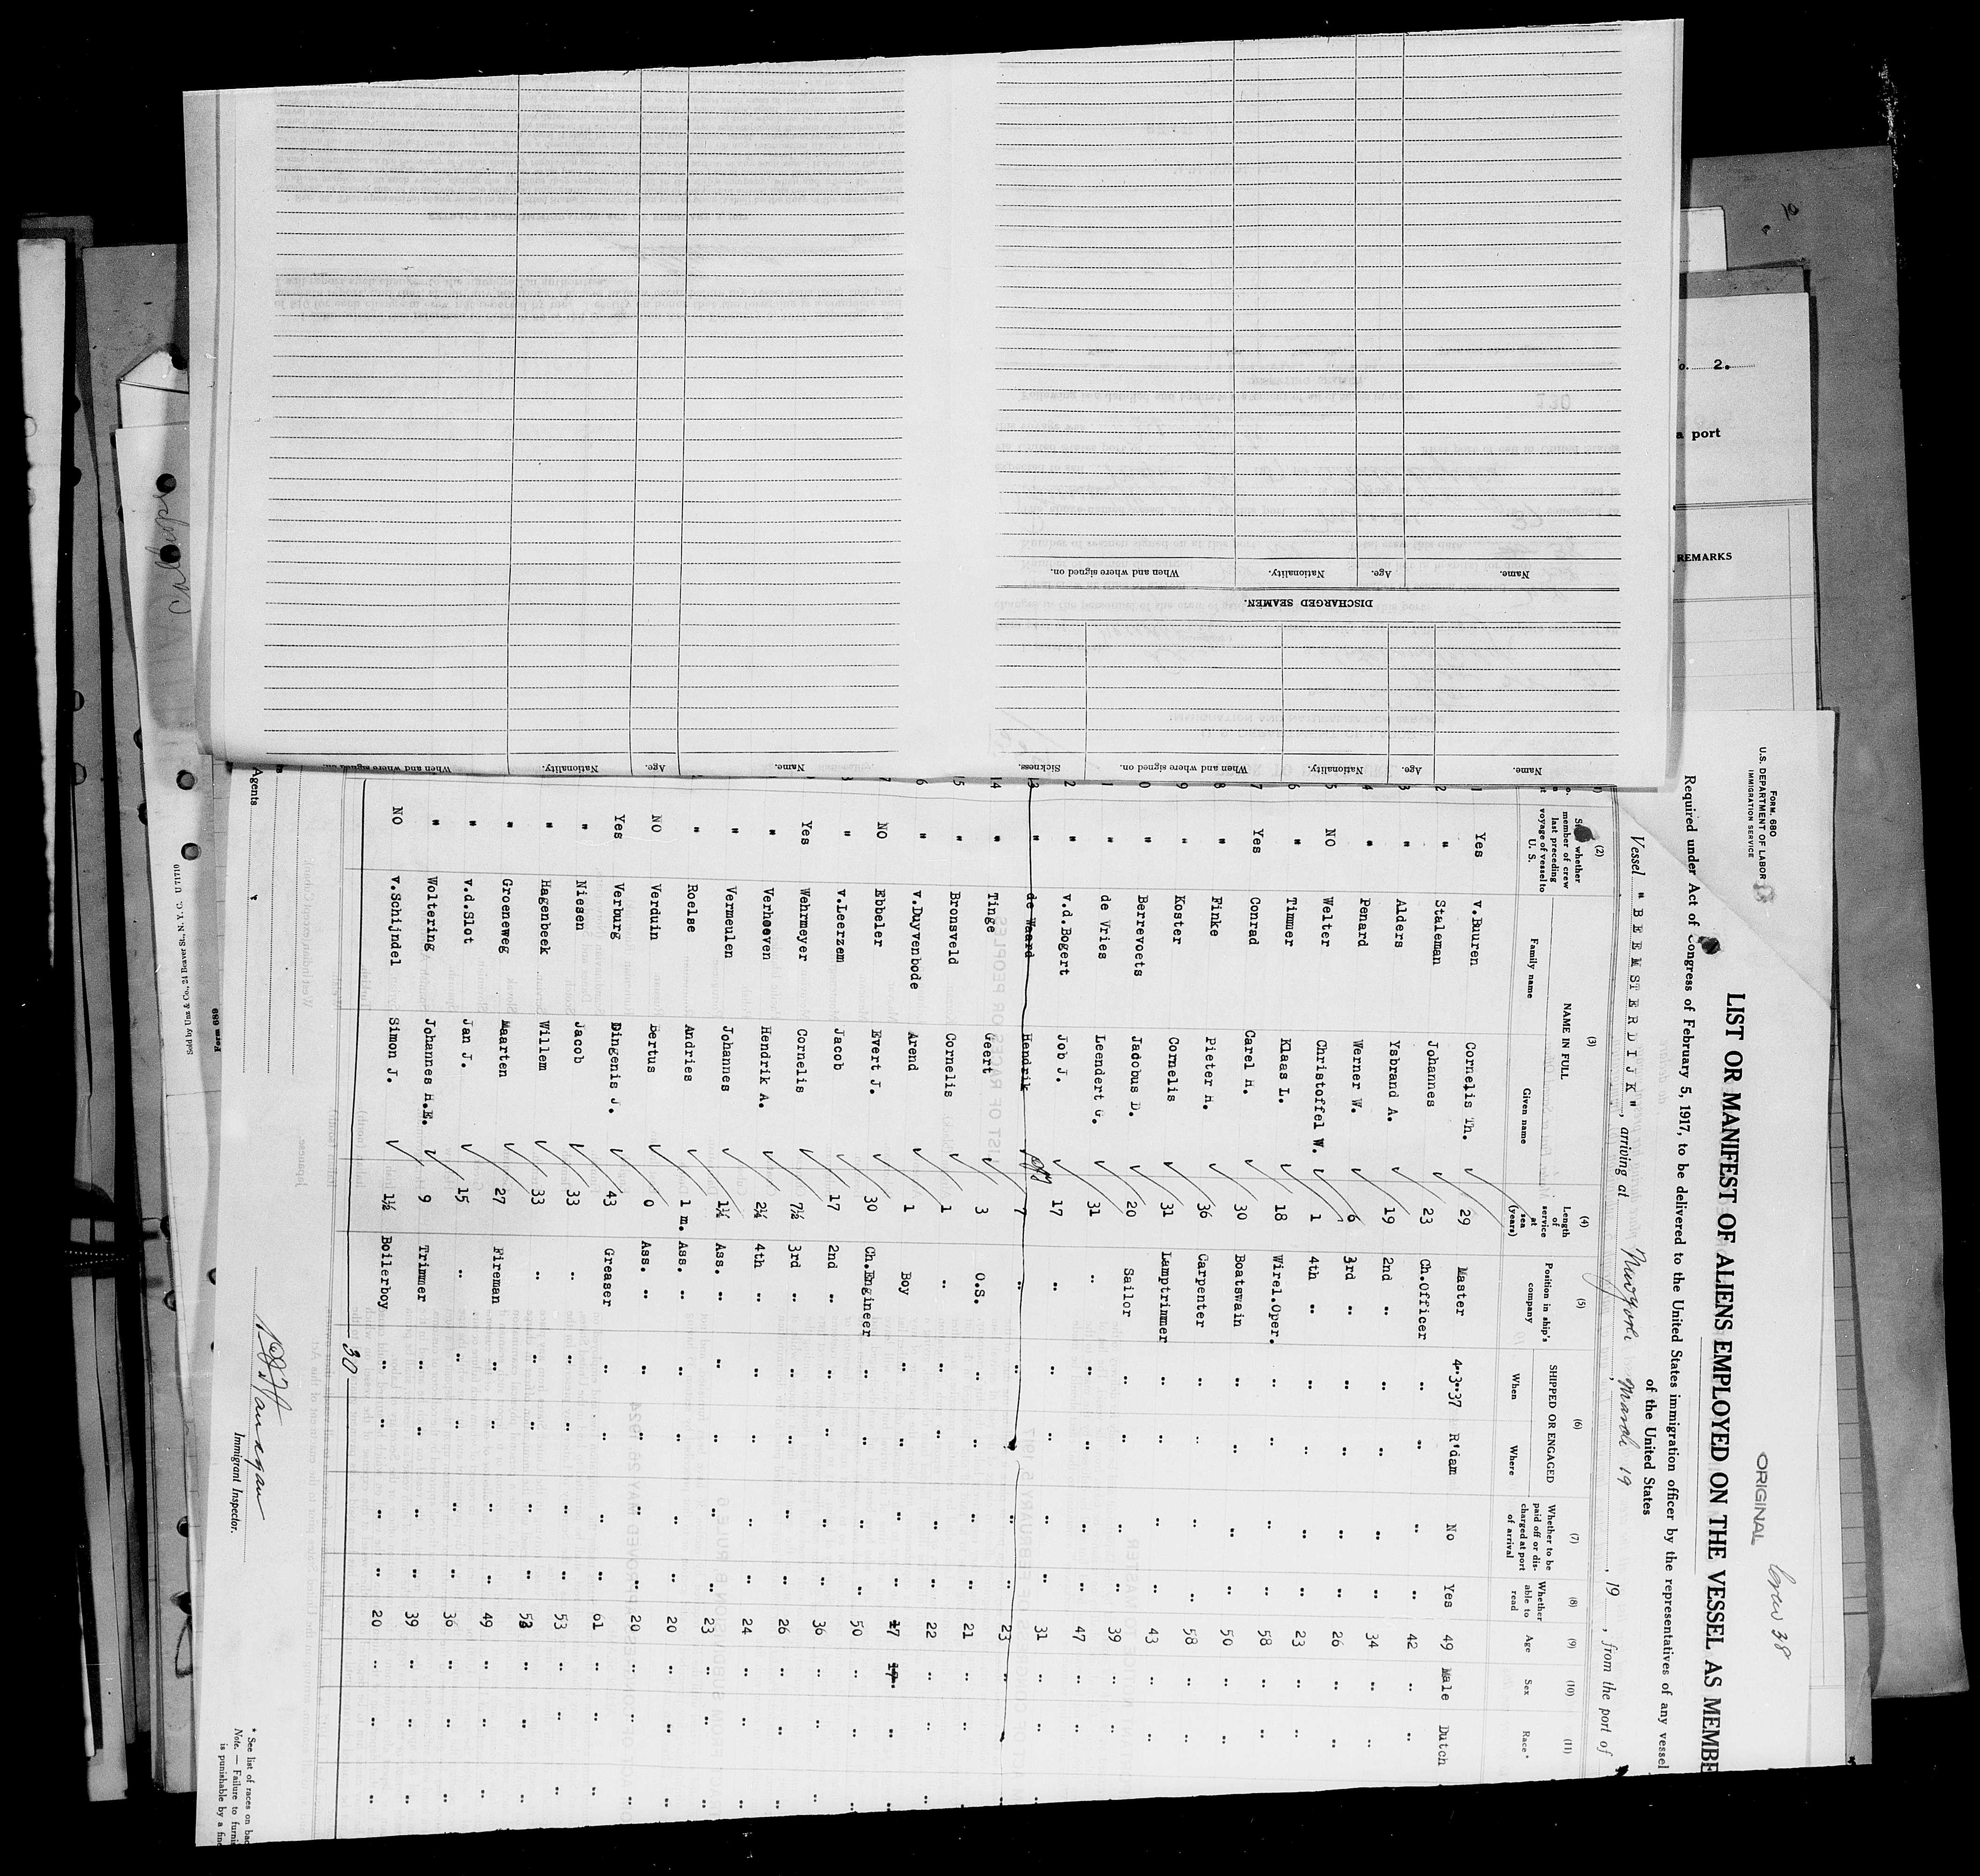 FORM 680
U.S. DEPARTMENT OF LABOR
IMMIGRATION SERVICE
ORIGINAL
Crew 38
LIST OR MANIFEST OF ALIENS EMPLOYED ON THE VESSEL AS MEMBE
Required under Act of Congress of February 5, 1917, to be delivered to the United States immigration officer by the representatives of any vessel
of the United States
Vessel "BEEMSTERDIJK", arriving at New York March 19, 19, from the port of
(2) (3) (4) (5) (6) (7) (8) (9) (10) (11)
whether member of crew last preceding voyage of vessel to U. S. NAME IN FULL Family name Given name Length of service at sea (years) Position in ship's company SHIPPED OR ENGAGED When Where Whether to be paid off or discharged at port of arrival Whether able to read Age Sex Race*
1 Yes v.Buuren Cornelis Th. 29 Master 4-3-37 R'dam No Yes 49 Male Dutch
2 " Staleman Johannes 23 Ch.Officer " " " " 42 " "
3 " Alders Ysbrand A. 19 2nd " " " " " 34 " "
4 " Penard Werner W. 6 3rd " " " " " 26 " "
5 NO Welter Christoffel W. 1 4th " " " " " 23 " "
6 " Timmer Klaas L. 18 Wirel.Oper. " " " " 58 " "
7 Yes Conrad Carel H. 30 Boatswain " " " " 50 " "
8 " Finke Pieter H. 36 Carpenter " " " " 58 " "
9 " Koster Cornelis 31 Lamptrimmer " " " " 43 " "
0 " Berrevoets Jacobus D. 20 Sailor " " " " 39 " "
1 " de Vries Leendert G. 31 " " " " " 47 " "
2 " v.d.Bogert Job J. 17 " " " " " 31 " "
13 " de Waard Hendrik 7 " " " " " 23 " "
14 " Tinge Geert 3 O.S. " " " " 21 " "
15 " Bronsveld Cornelis 1 " " " " " 22 " "
6 " v.Duyvenbode Arend 1 Boy " " " " 17 17. "
7 NO Ebbeler Evert J. 30 Ch.Engineer " " " " 50 " "
8 " v.Leerzem Jacob 17 2nd " " " " " 36 " "
Yes Wehrmeyer Cornelis 7½ 3rd " " " " " 26 " "
" Verhoeven Hendrik A. 2¼ 4th " " " " " 24 " "
" Vermeulen Johannes 1¼ Ass. " " " " " 23 " "
" Roelse Andries 1 m. Ass. " " " " " 20 " "
NO Verduin Bertus 0 Ass. " " " " " 20 " "
Yes Verburg Dingenis J. 43 Greaser " " " " 61 " "
" Niesen Jacob 33 " " " " " 53 " "
" Hagenbeek Willem 33 " " " " " 52 " "
" Groeneweg Maarten 27 Fireman " " " " 49 " "
" v.d.Slot Jan J. 15 " " " " " 36 " "
" Woltering Johannes H.E. 9 Trimmer " " " " 39 " "
NO v.Schijndel Simon J. 1½ Boilerboy " " " " 20 " "
30
Agents
Immigrant Inspector.
* See list of races on bac
Note. — Failure to furnis
is punishable by a fine
Sold by Unz & Co., 24 Beaver St., N. Y. C.
Form 689
Name. Age. Nationality. When and where signed on. Sickness.
Name. Age. Nationality. When and where signed on.
DISCHARGED SEAMEN.
Name. Age. Nationality. When and where signed on.
o. 2.
a port
REMARKS
10